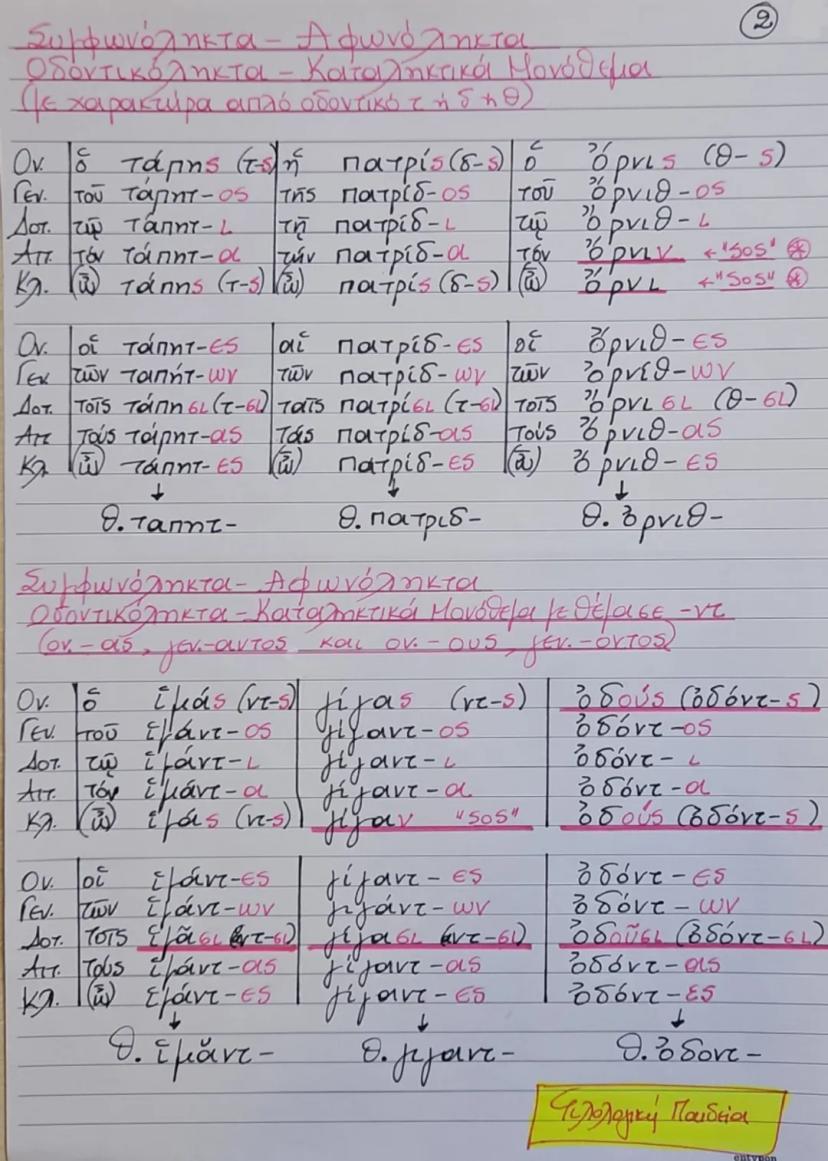 2
Συμφωνόληκτα - Αφωνόληκτα
Οδοντικόληκτα - Καταληκτικά Μονόθεμα
(με χαρακτήρα απλό οδοντικό τ ή δ ή θ)
Ον. ὁ τάπης (τ-ς) ἡ πατρίς (δ-ς) ὁ ὄρνις (θ-ς)
Γεν. τοῦ τάπητ-ος τῆς πατρίδ-ος τοῦ ὄρνιθ-ος
Δοτ. τῷ τάπητ-ι τῇ πατρίδ-ι τῷ ὄρνιθ-ι
Αιτ. τόν τάπητ-α τήν πατρίδ-α τόν ὄρνιν ←"SOS" *
Κλ. (ὦ) τάπης (τ-ς) (ὦ) πατρίς (δ-ς) (ὦ) ὄρνι ←"SOS" *
Ον. οἱ τάπητ-ες αἱ πατρίδ-ες οἱ ὄρνιθ-ες
Γεν τῶν ταπήτ-ων τῶν πατρίδ-ων τῶν ὀρνίθ-ων
Δοτ. τοῖς τάπησι (τ-σι) ταῖς πατρίσι (τ-σι) τοῖς ὄρνισι (θ-σι)
Αιτ τούς τάπητ-ας τάς πατρίδ-ας τούς ὄρνιθ-ας
Κλ. (ὦ) τάπητ-ες (ὦ) πατρίδ-ες (ὦ) ὄρνιθ-ες
↓ ↓ ↓
θ. ταπητ- θ. πατριδ- θ. ὀρνιθ-
Συμφωνόληκτα - Αφωνόληκτα
Οδοντικόληκτα - Καταληκτικά Μονόθεμα με θέμα σε -ντ
(ον. -ας, γεν. -αντος και ον. -ους, γεν. -οντος)
Ον. ὁ ἱμάς (ντ-ς) γίγας (ντ-ς) ὀδούς (ὀδόντ-ς)
Γεν. τοῦ ἱμάντ-ος γίγαντ-ος ὀδόντ-ος
Δοτ. τῷ ἱμάντ-ι γίγαντ-ι ὀδόντ-ι
Αιτ. τόν ἱμάντ-α γίγαντ-α ὀδόντ-α
Κλ. (ὦ) ἱμάς (ντ-ς) γίγαν "SOS" ὀδούς (ὀδόντ-ς)
Ον. οἱ ἱμάντ-ες γίγαντ-ες ὀδόντ-ες
Γεν. τῶν ἱμάντ-ων γιγάντ-ων ὀδόντ-ων
Δοτ. τοῖς ἱμᾶσι (ντ-σι) γίγασι (ντ-σι) ὀδοῦσι (ὀδόντ-σι)
Αιτ. τούς ἱμάντ-ας γίγαντ-ας ὀδόντ-ας
Κλ. (ὦ) ἱμάντ-ες γίγαντ-ες ὀδόντ-ες
↓ ↓ ↓
θ. ἱμᾰντ- θ. γιγαντ- θ. ὀδοντ-
Φιλολογική Παιδεία
entypon